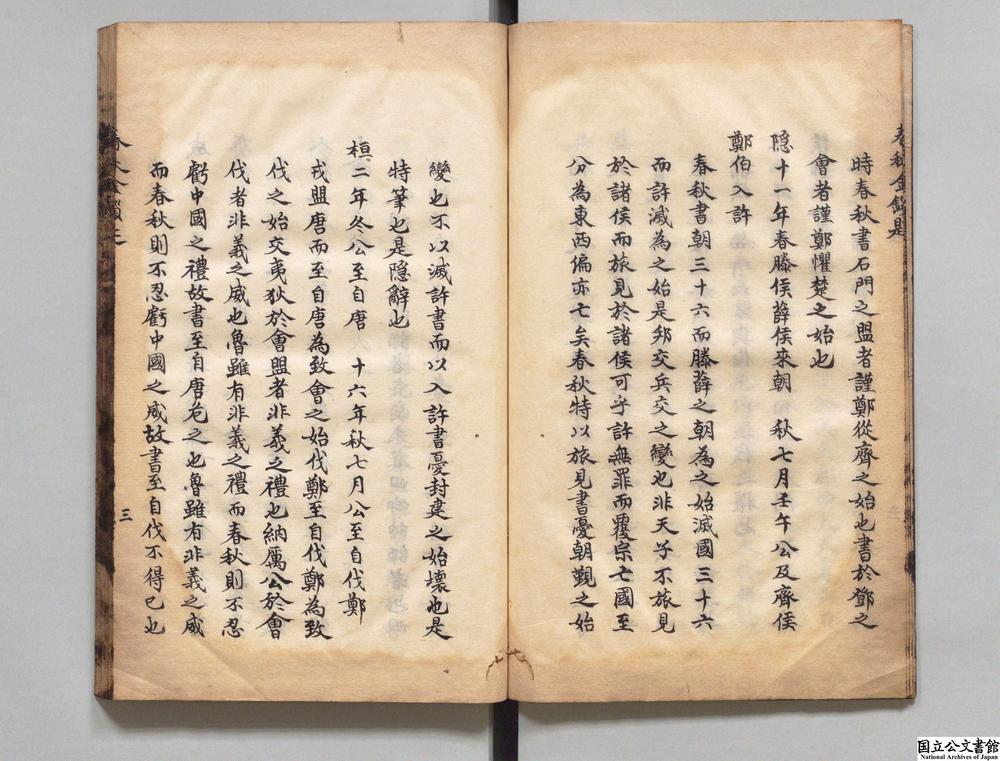 時春秋書石門之盟者謹鄭從齊之始也書於鄧之
會者謹鄭懼楚之始也
隐十一年春滕侯薛侯來朝 秋七月壬午公及齊侯
鄭伯入許
春秋書朝三十六而滕薛之朝為之始滅國三十六
而許滅為之始是邦交兵交之變也非天子不旅見
於諸侯而旅見於諸侯可乎許無罪而覆宗亡國至
分為東西偏亦亡矣春秋特以旅見書憂朝覲之始
變也不以滅許書而以入許書憂封建之始壞也是
特筆也是隐辭也
桓二年冬公至自唐 十六年秋七月公至自伐鄭
戎盟唐而至自唐為致會之始伐鄭至自伐鄭為致
伐之始交夷狄於會盟者非義之禮也納厲公於會
伐者非義之威也魯雖有非義之禮而春秋則不忍
虧中國之禮故書至自唐危之也魯雖有非義之威
而春秋則不忍虧中國之威故書至自伐不得已也
三
国立公文書館
National Archives of Japan